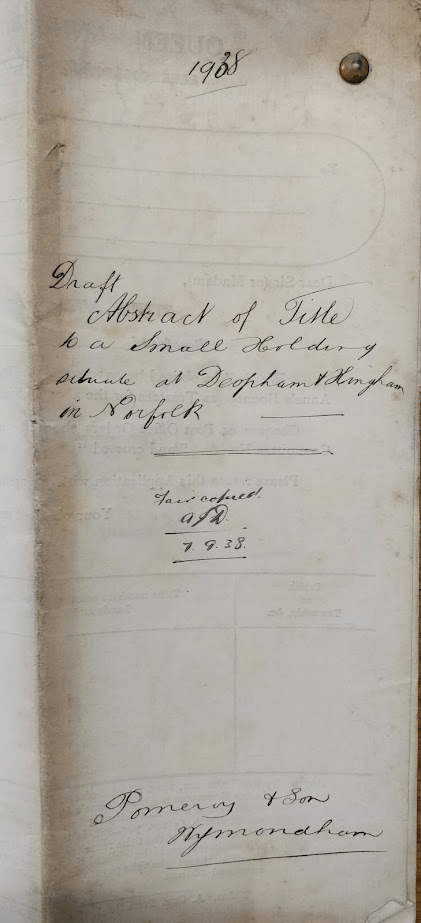 1938
Draft
Abstract of Title
to a Small Holding
situate at Deopham & Hingham
in Norfolk
Fair copied.
7.9.38.
Pomeroy & Son
Wymondham